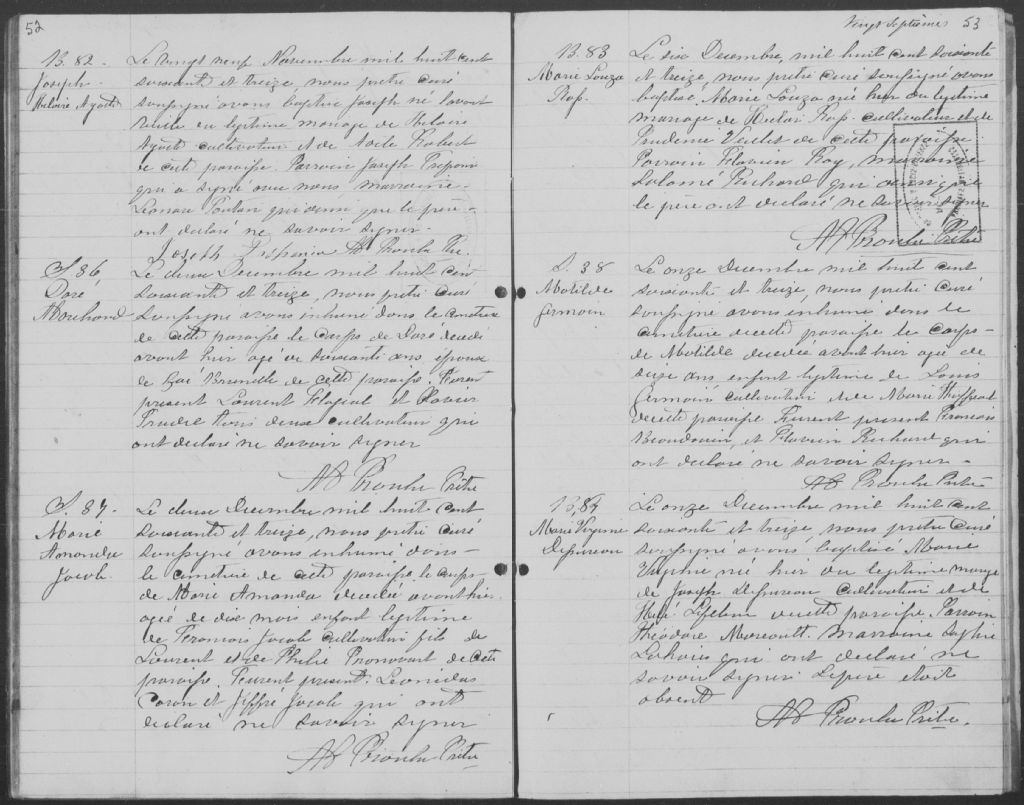 52
B. 82.
Joseph
Helaire Ayotte
Le vingt neuf Novembre mil huit cent
soixante et treize, nous prêtre curé
soussigné avons baptisé Joseph né
du légitime mariage de Helaire
Ayotte cultivateur et de Adele Robert
de cette paroisse. Parrain Joseph
qui a signé avec nous marraine
qui ainsi que le père
ont declaré ne savoir signer.
Joseph
S. 86
Doré
Marchand
Le deux Decembre mil huit cent
soixante et treize, nous prêtre curé
soussigné avons inhumé dans le cimetiere
de cette paroisse le corps de Doré decedé
avant hier agé de soixante ans époux
de Brunelle de cette paroisse. Furent
present Laurent et Olivier
Trudel tous deux cultivateur qui
ont declaré ne savoir signer
Prêtre
S. 87.
Marie
Amanda
Jacob.
Le deux Decembre mil huit cent
soixante et treize, nous prêtre curé
soussigné avons inhumé dans
le cimetiere de cette paroisse le corps
de Marie Amanda decedée avant hier
agée de dix mois enfant legitime
de Francois Jacob cultivateur fils de
Laurent et de Philie Pronovost de cette
paroisse. Furent present. Leonidas
Caron et Jeffré Jacob qui ont
declaré ne savoir signer
Prêtre
Vingt Septieme 53
B. 83
Marie Louza
Rop.
Le six Decembre, mil huit cent soixante
et treize, nous prêtre curé soussigné avons
baptisé, Marie Louza née hier du legitime
mariage de Rop. cultivateur et de
Prudence de cette paroisse.
Parrain Flavien Roy, marraine
Salomé Richard qui ainsi que
le pere ont declaré ne savoir signer
Prêtre
S. 88
Matilde
Germain
Le onze Decembre mil huit cent
soixante et treize, nous prêtre curé
soussigné avons inhumé dans le
cimetiere de cette paroisse le corps
de Matilde decedée avant hier agée de
ans enfant legitime de Louis
Germain cultivateur et de Marie
de cette paroisse Furent present Francois
Beaudouin, et Flavien Richard qui
ont declaré ne savoir signer
Prêtre
B. 84
Marie Virginie
Le onze Decembre mil huit cent
soixante et treize, nous prêtre curé
soussigné avons baptisé Marie
Virginie né hier du legitime mariage
de Joseph cultivateur et de
de cette paroisse. Parrain
Théodore Marcault. Marraine Sophie
qui ont declaré ne
savoir signer. Le père etait
absent
Prêtre.